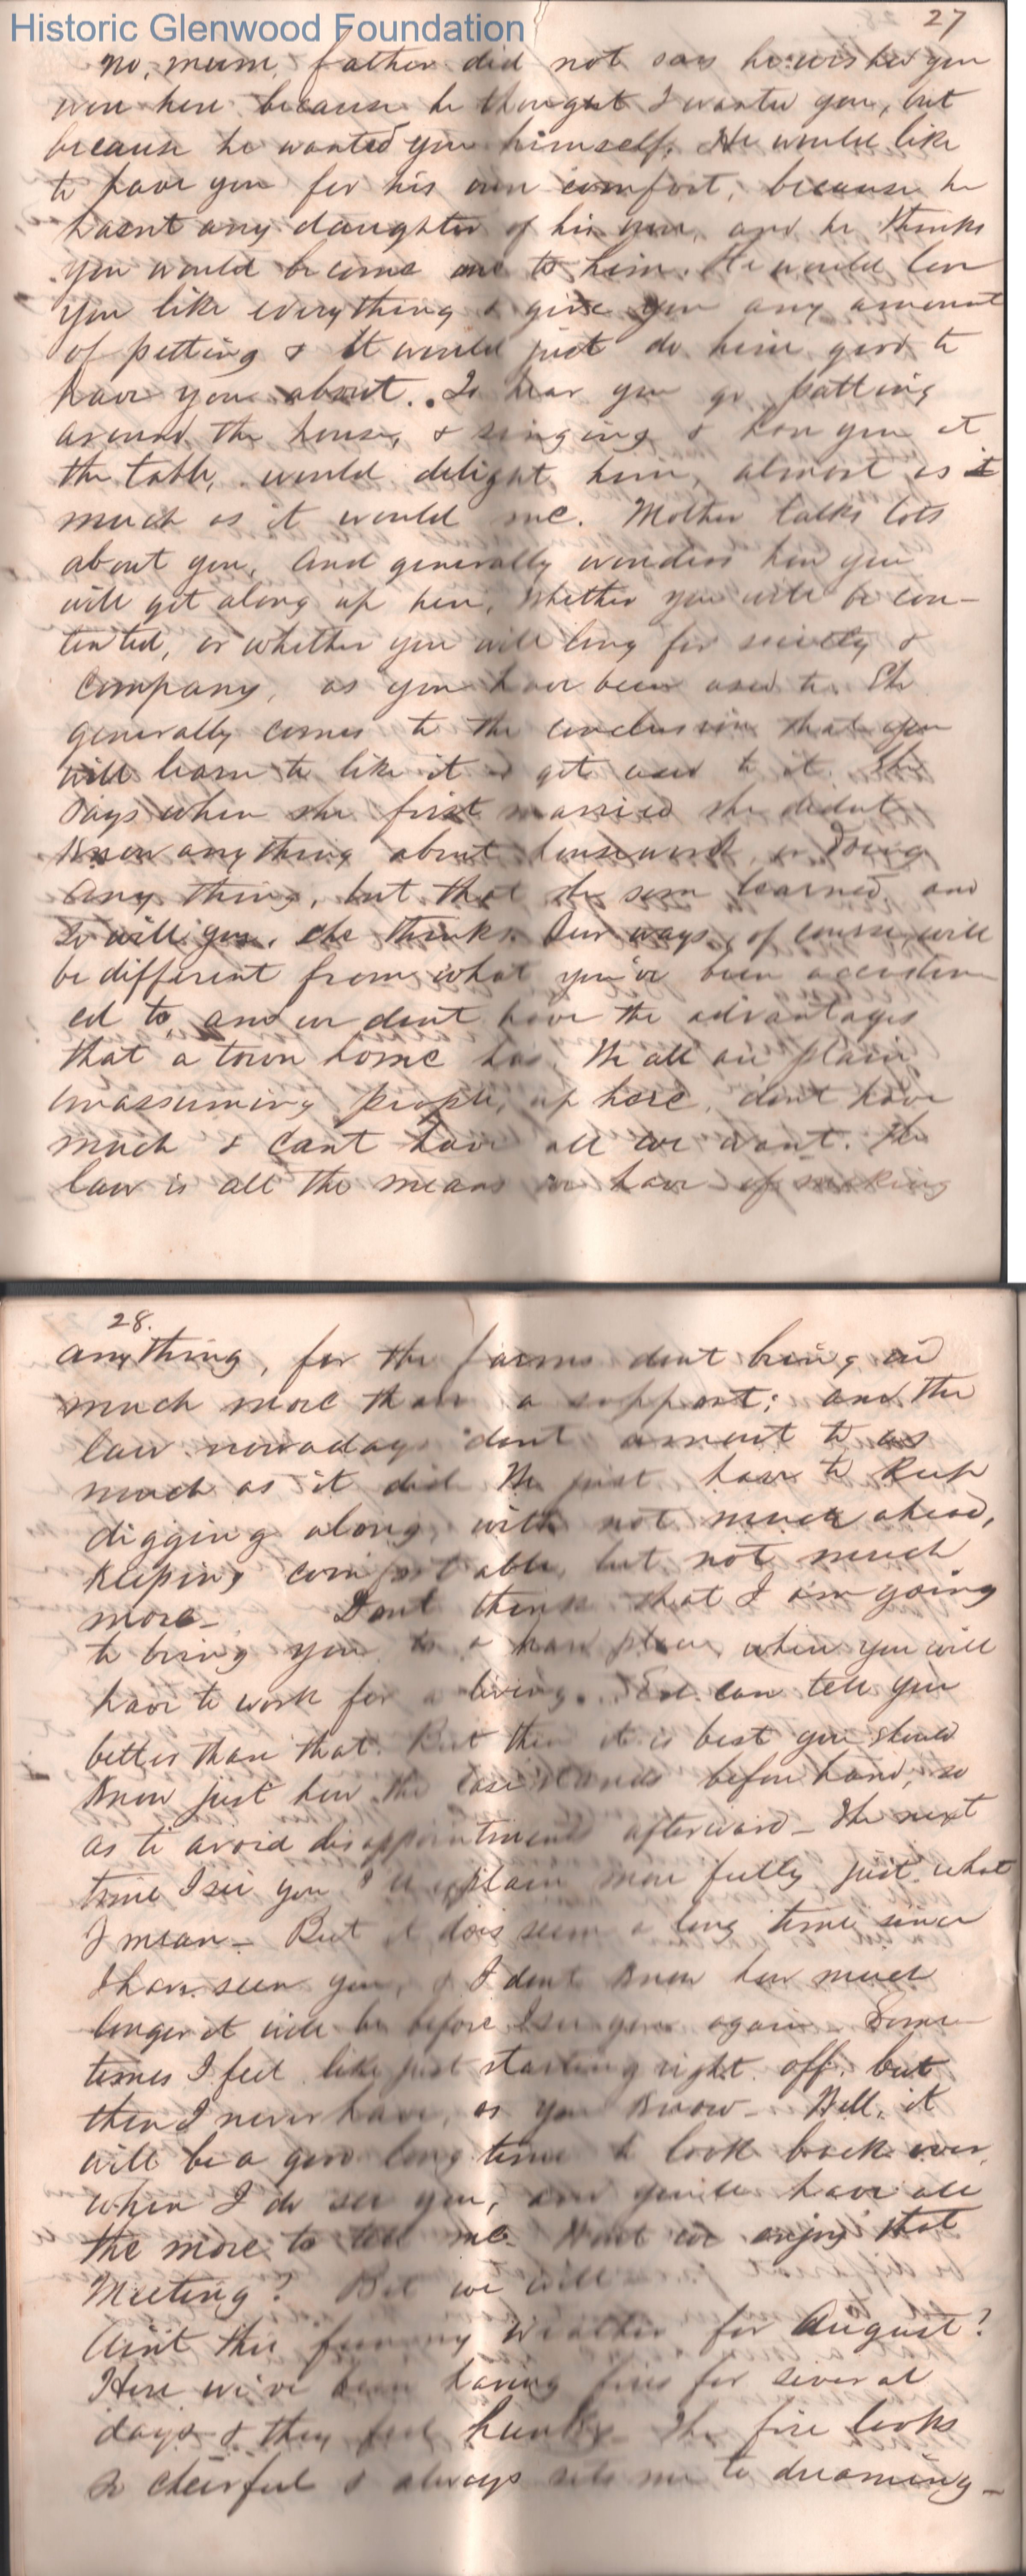 Historic Glenwood Foundation
27
No, mum, father did not say he wished you
were here because he thought I wanted you, but
because he wanted you himself. He would like
to have you for his own comfort, because he
hasnt any daughter of his own, and he thinks
you would become one to him. He would love
you like everything & give you any amount
of petting & It would just do him good to
have you about. To hear you go patting
around the house, & singing & have you at
the table, would delight him, almost as
much as it would me. Mother talks lots
about you, and generally wonders how you
will get along up here, whether you will be con-
tented, or whether you will long for society &
company, as you have been used to. She
generally comes to the conclusion that you
will learn to like it & get used to it. She
says when she first married she didnt
know anything about housework, or doing
any thing, but that she soon learned, and
so will you, she thinks. Our ways, of course, will
be different from what you've been accustom
ed to, and we dont have the advantages
that a town home has. We all are plain
unassuming people, up here, dont have
much & cant have all we want. The
law is all the means we have of making
28.
anything, for the farms dont bring in
much more than a support; and the
law nowadays dont amount to as
much as it did. We just have to keep
digging along, with not much ahead,
keeping comfortable, but not much
more- Dont think that I am going
to bring you to a hard place, where you will
have to work for a living. can tell you
better than that. But then it is best you should
know just how the case stands beforehand, so
as to avoid disappointments afterward - The next
time I see you I'll explain more fully just what
I mean - But it does seem a long time since
I have seen you, & I dont know how much
longer it will be before I see you again. Some
times I feel like just starting right off, but
then I never have, as you know - Well, it
will be a good long time to look back over,
when I do see you, and you'll have all
the more to tell me. Wont we enjoy that
Meeting? But we will
Aint this funny weather for August?
Here we've been having fires for several
days & they feel The fire looks
so cheerful & always sets me to dreaming -